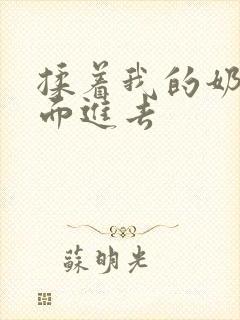 揉着我的奶
而進去
蘇明光